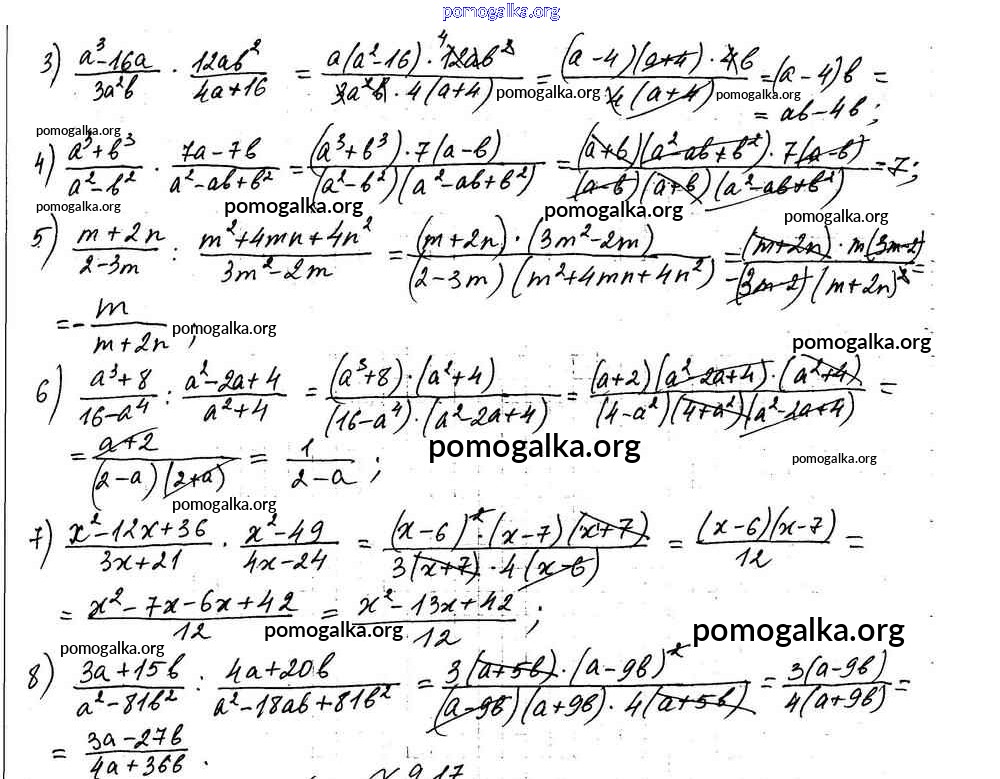 pomogalka.org
3) (a³-16a)/(3a²b) · (12ab²)/(4a+16) = (a(a²-16)·12ab²)/(3a²b·4(a+4)) = ((a-4)(a+4)·4b)/(4(a+4)) = (a-4)b =
pomogalka.org pomogalka.org
= ab-4b;
pomogalka.org
4) (a³+b³)/(a²-b²) · (7a-7b)/(a²-ab+b²) = ((a³+b³)·7(a-b))/((a²-b²)(a²-ab+b²)) = ((a+b)(a²-ab+b²)·7(a-b))/((a-b)(a+b)(a²-ab+b²)) = 7;
pomogalka.org pomogalka.org pomogalka.org pomogalka.org
5) (m+2n)/(2-3m) : (m²+4mn+4n²)/(3m²-2m) = ((m+2n)·(3m²-2m))/((2-3m)(m²+4mn+4n²)) = ((m+2n)·m(3m-2))/(-(3m-2)(m+2n)²) =
= -m/(m+2n);
pomogalka.org pomogalka.org
6) (a³+8)/(16-a⁴) : (a²-2a+4)/(a²+4) = ((a³+8)·(a²+4))/((16-a⁴)·(a²-2a+4)) = ((a+2)(a²-2a+4)·(a²+4))/((4-a²)(4+a²)(a²-2a+4)) =
= (a+2)/((2-a)(2+a)) = 1/(2-a);
pomogalka.org pomogalka.org
pomogalka.org
7) (x²-12x+36)/(3x+21) · (x²-49)/(4x-24) = ((x-6)²·(x-7)(x+7))/(3(x+7)·4(x-6)) = ((x-6)(x-7))/12 =
= (x²-7x-6x+42)/12 = (x²-13x+42)/12;
pomogalka.org pomogalka.org
pomogalka.org
8) (3a+15b)/(a²-81b²) : (4a+20b)/(a²-18ab+81b²) = (3(a+5b)·(a-9b)²)/((a-9b)(a+9b)·4(a+5b)) = (3(a-9b))/(4(a+9b)) =
= (3a-27b)/(4a+36b).